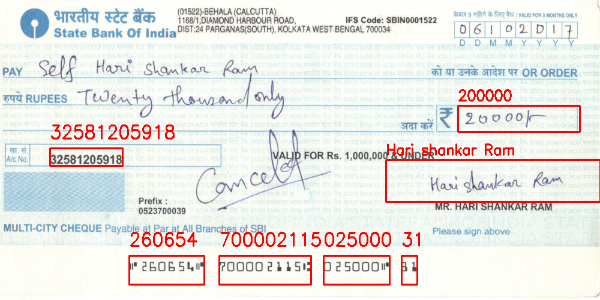 भारतीय स्टेट बैंक
State Bank Of India
(01522)-BEHALA (CALCUTTA)
1168/1,DIAMOND HARBOUR ROAD,
DIST:24 PARGANAS(SOUTH), KOLKATA WEST BENGAL 700034
IFS Code: SBIN0001522
केवल 3 महीने के लिए वैध / VALID FOR 3 MONTHS ONLY
06102017
D D M M Y Y Y Y
PAY Self Hari Shankar Ram को या उनके आदेश पर OR ORDER
रुपये RUPEES Twenty thousand only
200000
अदा करें ₹ 20000/-
32581205918
खा. सं.
A/c No. 32581205918
VALID FOR Rs. 1,000,000 & UNDER
Cancel
Hari shankar Ram
Hari shankar Ram
Prefix :
0523700039
MR. HARI SHANKAR RAM
MULTI-CITY CHEQUE Payable at Par at All Branches of SBI
Please sign above
260654 700002115 025000 31
⑈260654⑈ 700002115⑆ 025000⑈ 31